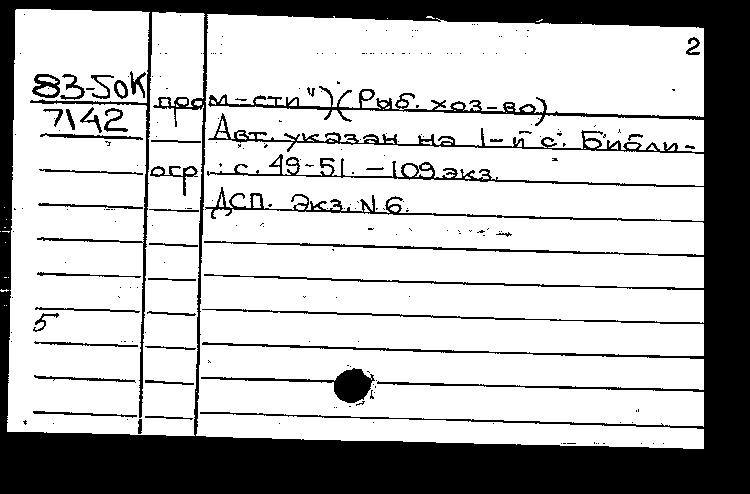 2
83-50К
7142
пром-сти")(Рыб. хоз-во).
Авт. указан на 1-й с. Библи-
огр.: с. 49-51. - 109 экз.
ДСП. Экз. N 6.
5